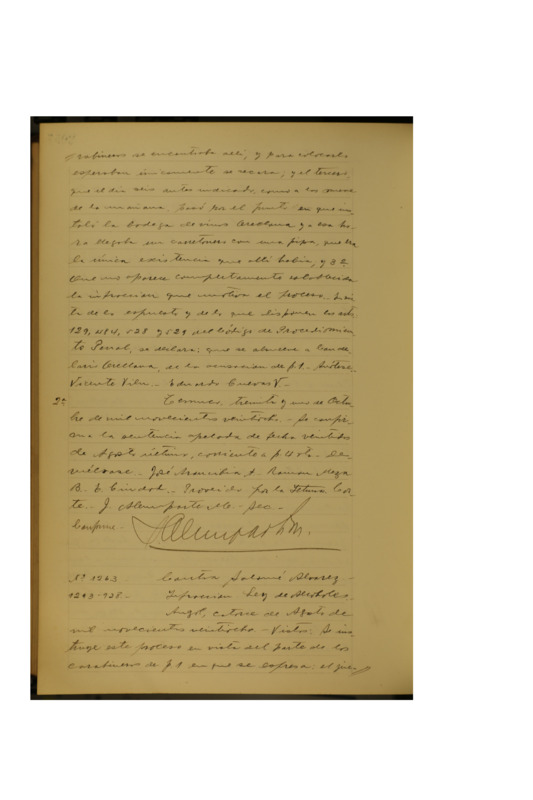 rabineros se encontraba allí, y para colocarla
esperaban únicamente se secara; y el tercero,
que el día seis antes indicado, como a las once
de la mañana, pasó por el punto en que ins-
taló la bodega de vinos Arellana y a esa ho-
ra llegaba un carretonero con una pipa, que era
la única existencia que allí había, y 3º
Que no aparece completamente establecida
la infracción que motiva el proceso. En vir-
tud de lo expuesto y de lo que disponen los arts
129, 484, 528 y 529 del Código de Procedimien-
to Penal, se declara: que se absuelve a Cande-
lario Arellana, de la acusación de f. 1. Anótese.
Vicente Vilu. Eduardo Cuevas V.-
2ª Temuco, treinta y uno de Octu-
bre de mil novecientos veintiocho. - Se confir-
ma la sentencia apelada de fecha veintidos
de Agosto último, corriente a f. 4 vta. De-
vuélvase. José Arancibia A. Ramon Meza
B. E. Proveído por la Iltma. Cor-
te. J. Alemparte M. Sec.-
Conforme.-
Nº 1263. Contra Salomé Alvarez.-
1293-928.- Infraccion Ley de Alcoholes.-
Angol, catorce de Agosto de
mil novecientos veintiocho. - Vistos: Se ins-
truye este proceso en vista del parte de los
carabineros de f. 1 en que se expresa: el